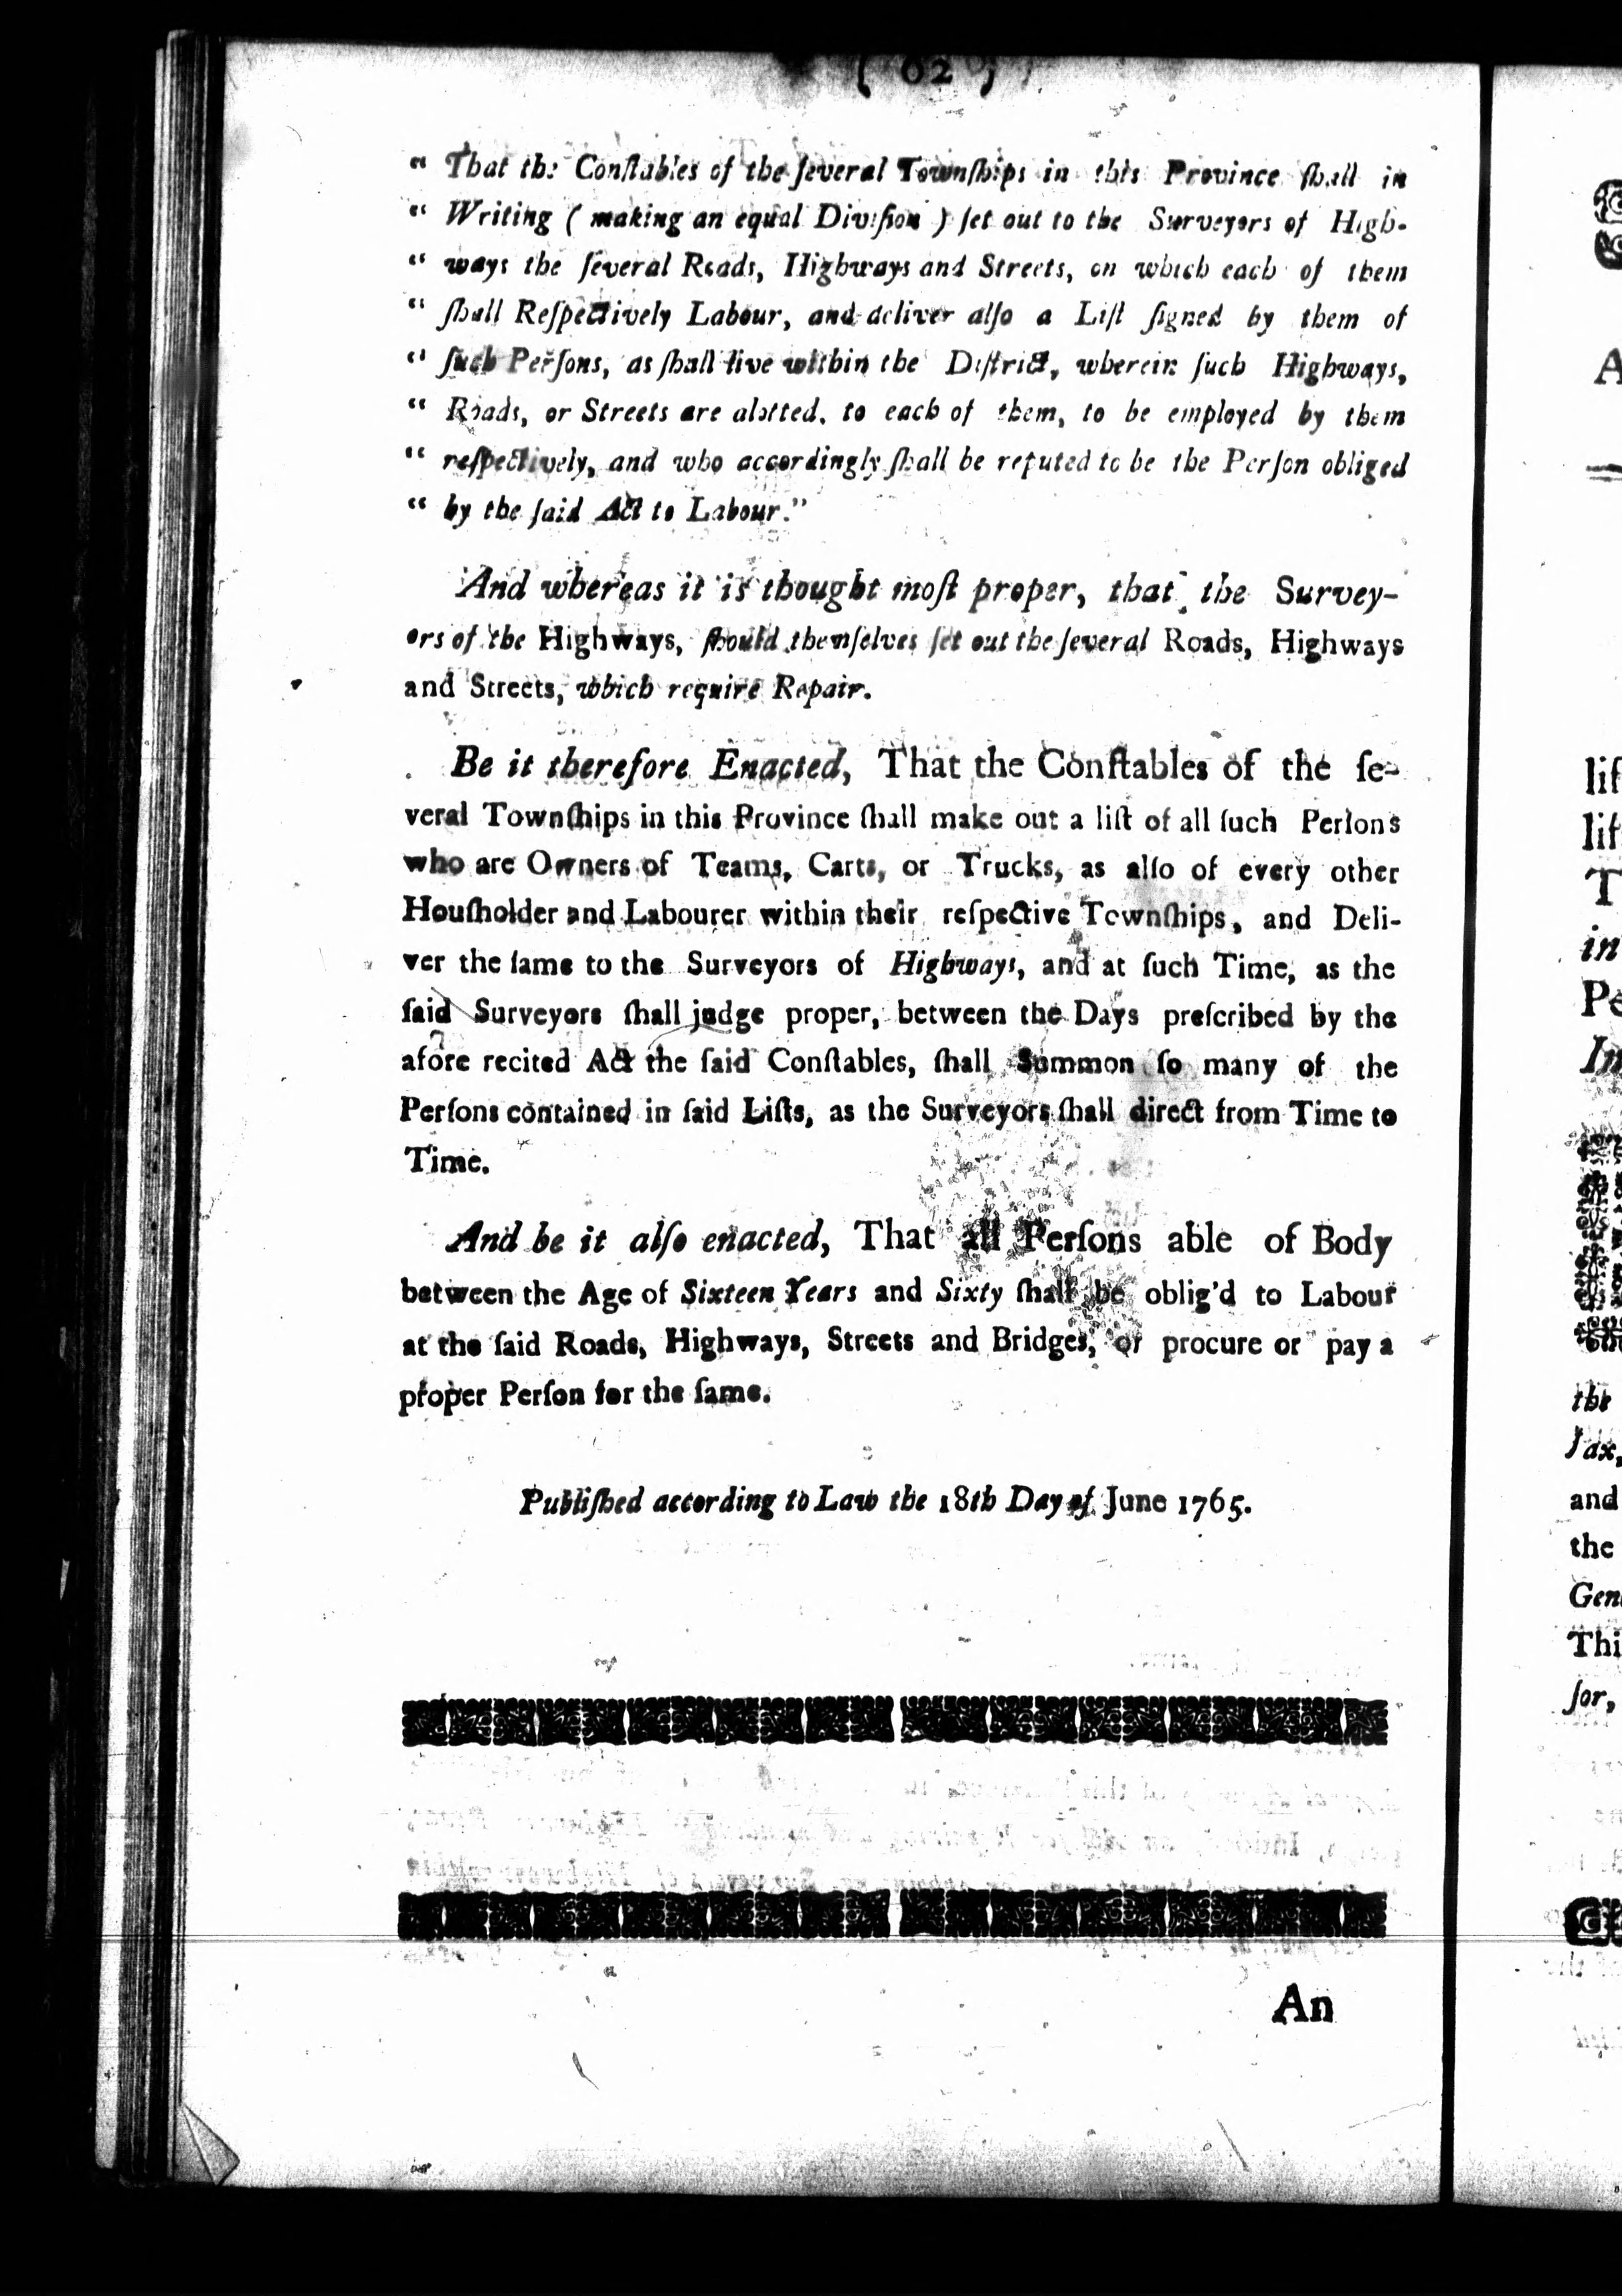 ( 62 )
“ That the Conſtables of the ſeveral Townſhips in this Province ſhall in
“ Writing ( making an equal Diviſion ) ſet out to the Surveyors of High-
“ ways the ſeveral Roads, Highways and Streets, on which each of them
“ ſhall Reſpectively Labour, and deliver alſo a Liſt ſigned by them of
“ ſuch Perſons, as ſhall live within the Diſtrict, wherein ſuch Highways,
“ Roads, or Streets are alotted, to each of them, to be employed by them
“ reſpectively, and who accordingly ſhall be reputed to be the Perſon obliged
“ by the ſaid Act to Labour.”
And whereas it is thought moſt proper, that the Survey-
ors of the Highways, ſhould themſelves ſet out the ſeveral Roads, Highways
and Streets, which require Repair.
Be it therefore Enacted, That the Conſtables of the ſe-
veral Townſhips in this Province ſhall make out a liſt of all ſuch Perſons
who are Owners of Teams, Carts, or Trucks, as alſo of every other
Houſholder and Labourer within their reſpective Townſhips, and Deli-
ver the ſame to the Surveyors of Highways, and at ſuch Time, as the
ſaid Surveyors ſhall judge proper, between the Days preſcribed by the
afore recited Act the ſaid Conſtables, ſhall Summon ſo many of the
Perſons contained in ſaid Liſts, as the Surveyors ſhall direct from Time to
Time.
And be it alſo enacted, That all Perſons able of Body
between the Age of Sixteen Years and Sixty ſhall be oblig'd to Labour
at the ſaid Roads, Highways, Streets and Bridges, or procure or pay a
proper Perſon for the ſame.
Publiſhed according to Law the 18th Day of June 1765.
An
liſ
liſ
T
in
Pe
In
the
Tax,
and
the
Gen
Thi
for,